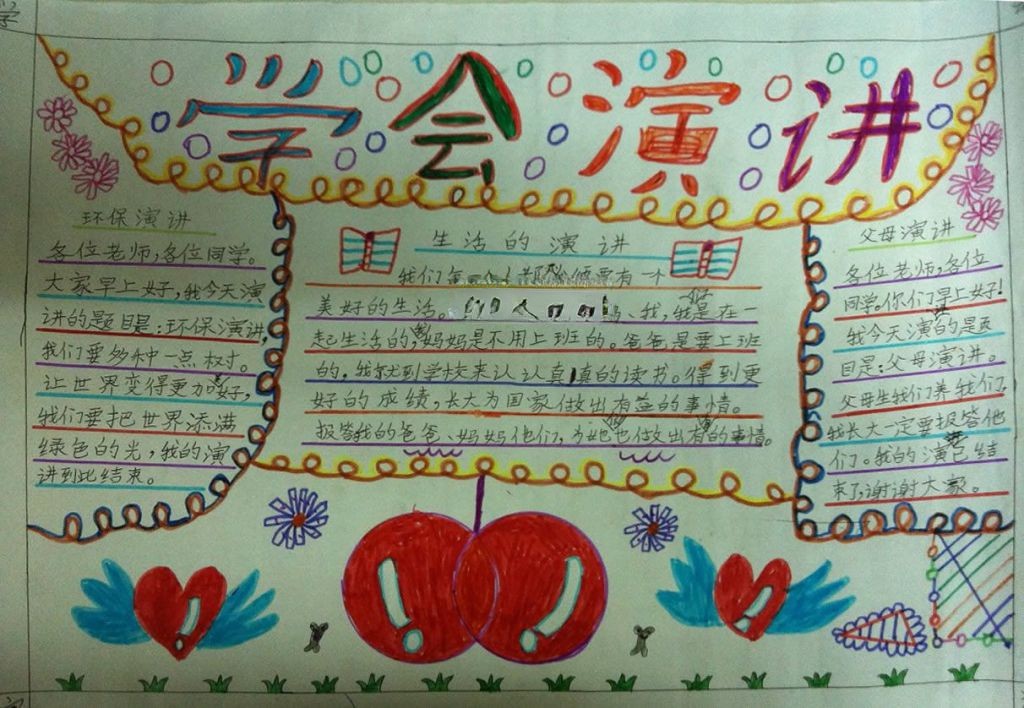 学会演讲
环保演讲
各位老师,各位同学。
大家早上好,我今天演
讲的题目是:环保演讲,
我们要多种一点树。
让世界变得更加好,
我们要把世界添满
绿色的光,我的演
讲到此结束。
生活的演讲
我们每 都 需要有一个
美好的生活。 妈、我,我是在一
起生活的,妈妈是不用上班的。爸爸是要上班
的,我就到学校来认认真真的读书。得到更
好的成绩,长大为国家做出有益的事情。
报答我的爸爸、妈妈他们,为她也做出有的事情。
父母演讲
各位老师,各位
同学。你们早上好!
我今天演的是题
目是:父母演讲。
父母生我们养我们,
我长大一定要报答他
们。我的演已结
束了,谢谢大家。